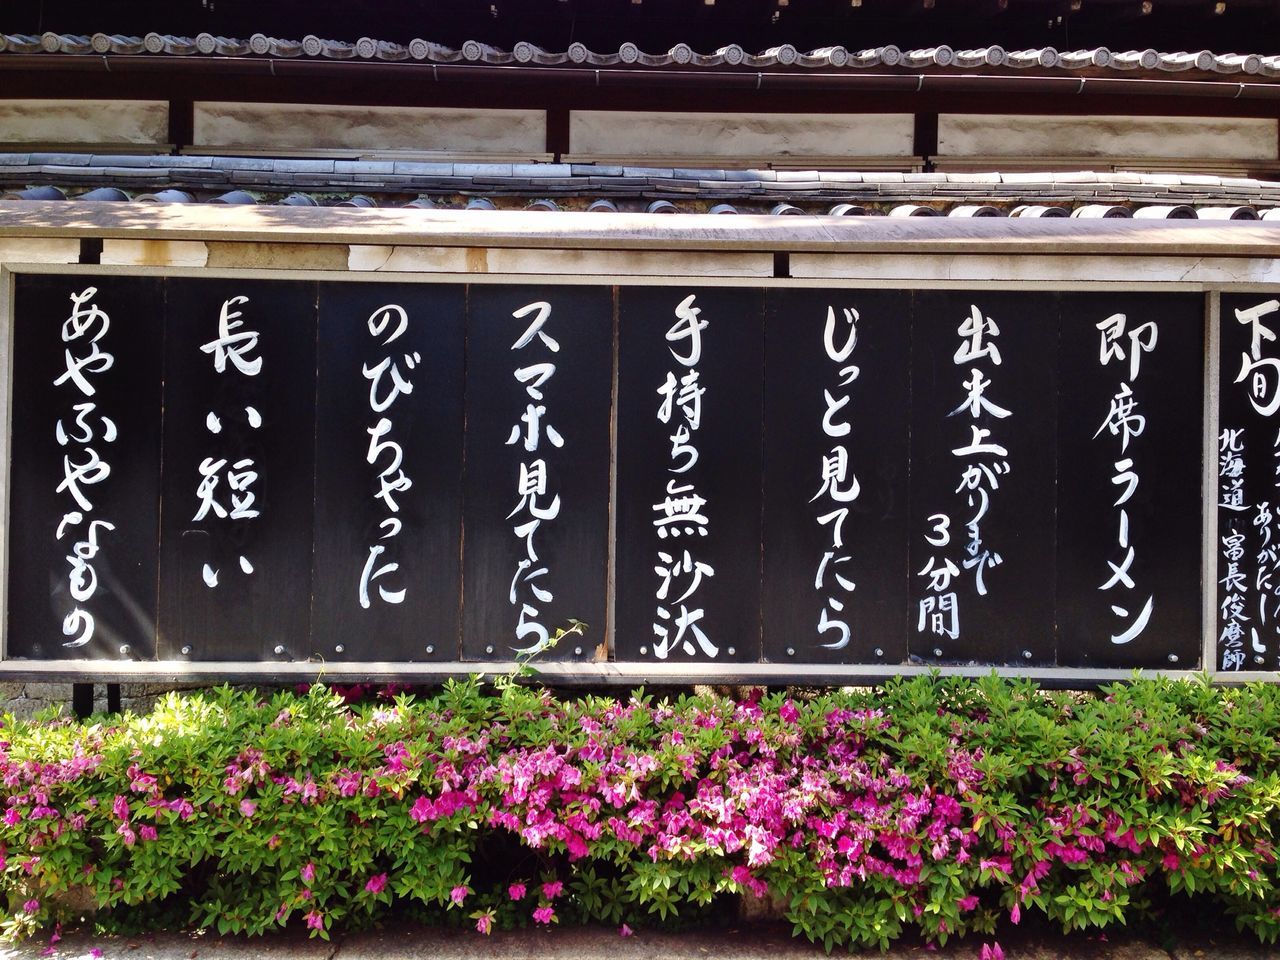 下旬
ありがたし
北海道 富長俊麿師
即席ラーメン
出来上がりまで
3分間
じっと見てたら
手持ち無沙汰
スマホ見てたら
のびちゃった
長い短い
あやふやなもの